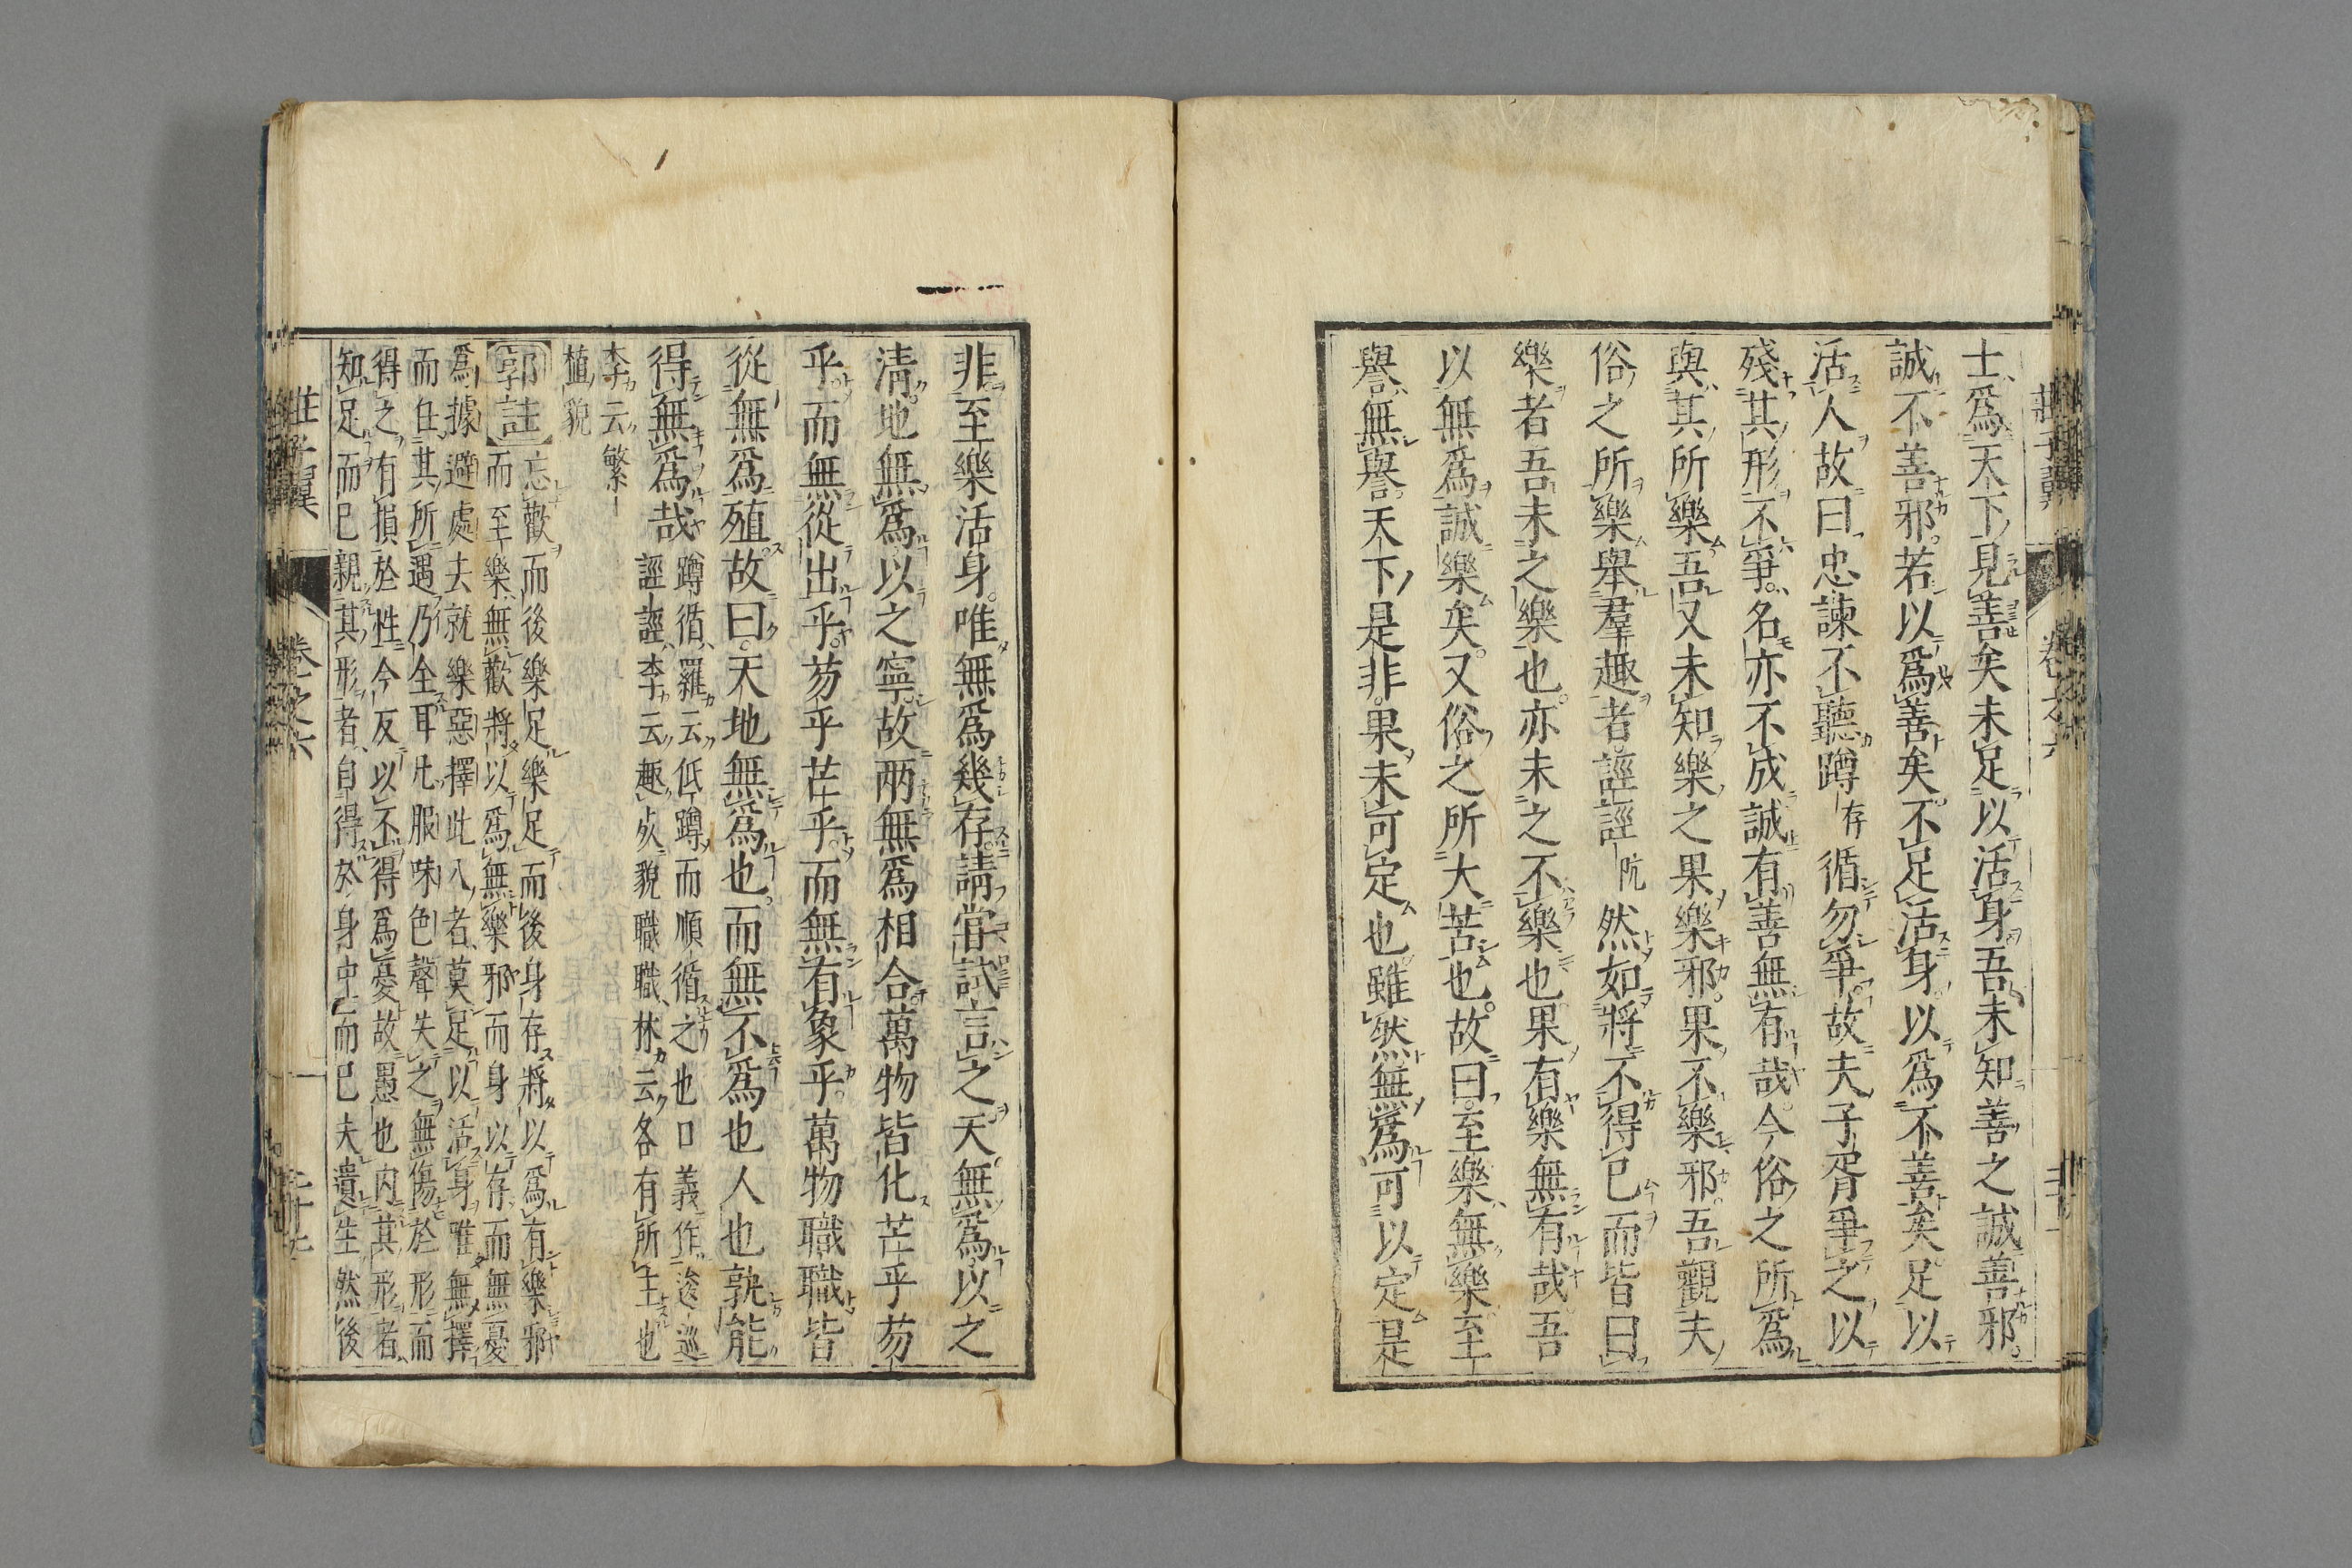 莊子翼　卷之六
士爲天下見善矣未足以活身吾未知善之誠善邪
誠不善邪若以爲善矣不足活身以爲不善矣足以
活人故曰忠諫不聽蹲存循勿爭故夫子胥爭之以
殘其形不爭名亦不成誠有善無有哉今俗之所爲
與其所樂吾又未知樂之果樂邪果不樂邪吾觀夫
俗之所樂舉羣趣者誙誙䡖然如將不得已而皆曰
樂者吾未之樂也亦未之不樂也果有樂無有哉吾
以無爲誠樂矣又俗之所大苦也故曰至樂無樂至
譽無譽天下是非果未可定也雖然無爲可以定是
非至樂活身唯無爲幾存請嘗試言之天無爲以之
淸地無爲以之寧故兩無爲相合萬物皆化芒乎芴
乎而無從出乎芴乎芒乎而無有象乎萬物職職皆
從無爲殖故曰天地無爲也而無不爲也人也孰能
得無爲哉
蹲循羅云低蹲而順循之也口義作逡巡
誙誙李云趣死貌職職林云各有所主也
李云繁
植貌
郭註
忘歡而後樂足樂足而後身存將以爲有樂邪
而至樂無歡將以爲無樂邪而身以存而無憂
爲據避處去就樂惡擇此八者莫足以活身唯無擇
而任其所遇乃全耳凡服味色聲失之無傷於形而
得之有損於性今反以不得爲憂故愚也內其形者
知足而已親其形者自得於身中而已夫遺生然後
莊子翼　卷之六